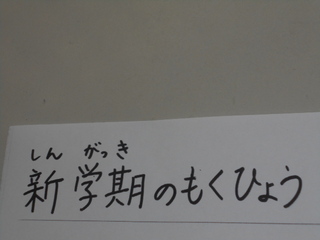 しん がっき
新学期のもくひょう